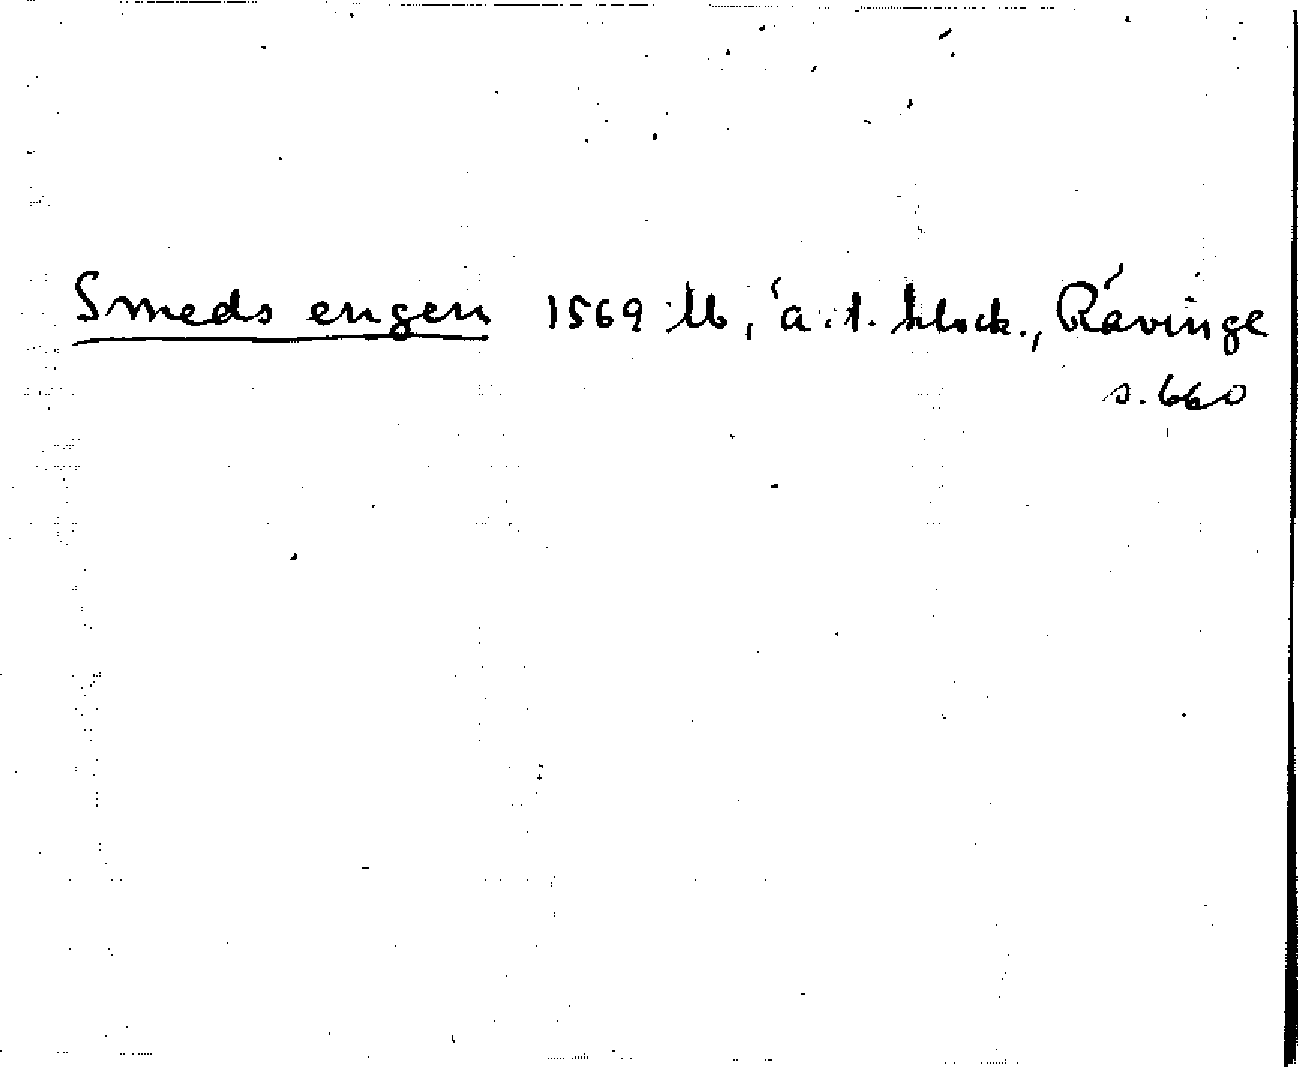 Smeds engen 1569 Lb, ä. t. klock., Rävinge
s. 660